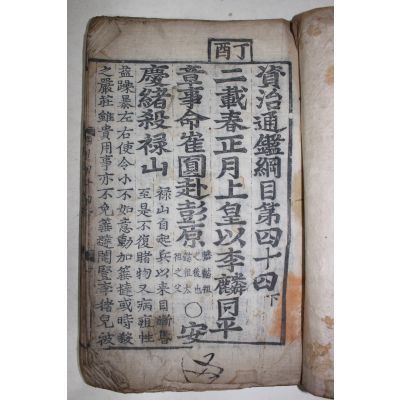 丁酉
資治通鑑綱目第四十四下
二載春正月上皇以李麟同平
章事命崔圓赴彭原
麟懿祖
之後也
懿祖太
祖之父
○安
慶緖殺祿山
祿山自起兵以來目漸昬
至是不復賭物又病疽性
益躁暴左右使令小不如意動加箠撻或時殺
之嚴莊雖貴用事亦不免箠撻閹竪李猪兒被